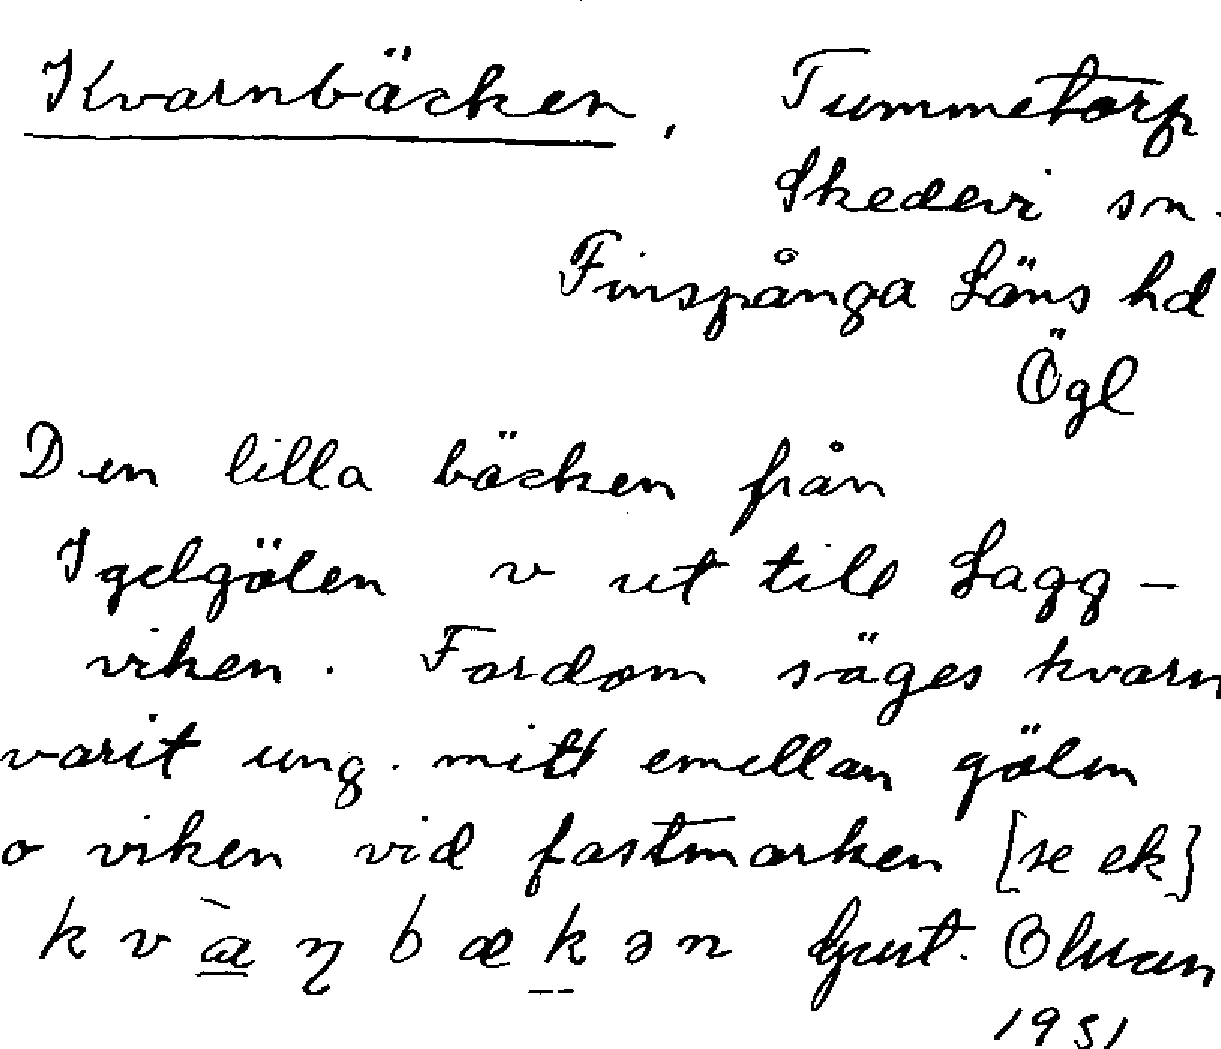 Kvarnbäcken, Tummetorp
Skedevi sn.
Finspånga Läns hd
Ögl
Den lilla bäcken från
Igelgölen v ut till Lagg-
viken. Fordom säges kvarn
varit ung. mitt emellan gölen
o viken vid fastmarken [se ek]
Gust. Olsson
1951